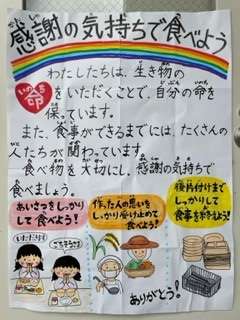 感謝の気持ちで食べよう
わたしたちは、生き物の
命をいただくことで、自分の命を
保っています。
また、食事ができるまでには、たくさんの
人たちが関わっています。
食べ物を大切にし、感謝の気持ちで
食べましょう。
あいさつをしっかり
して食べよう!
いただきます
ごちそうさま
作った人の思いを
しっかり受け止めて
食べよう!
後片付けまで
しっかりして
食事を終えよう!
ありがとう!